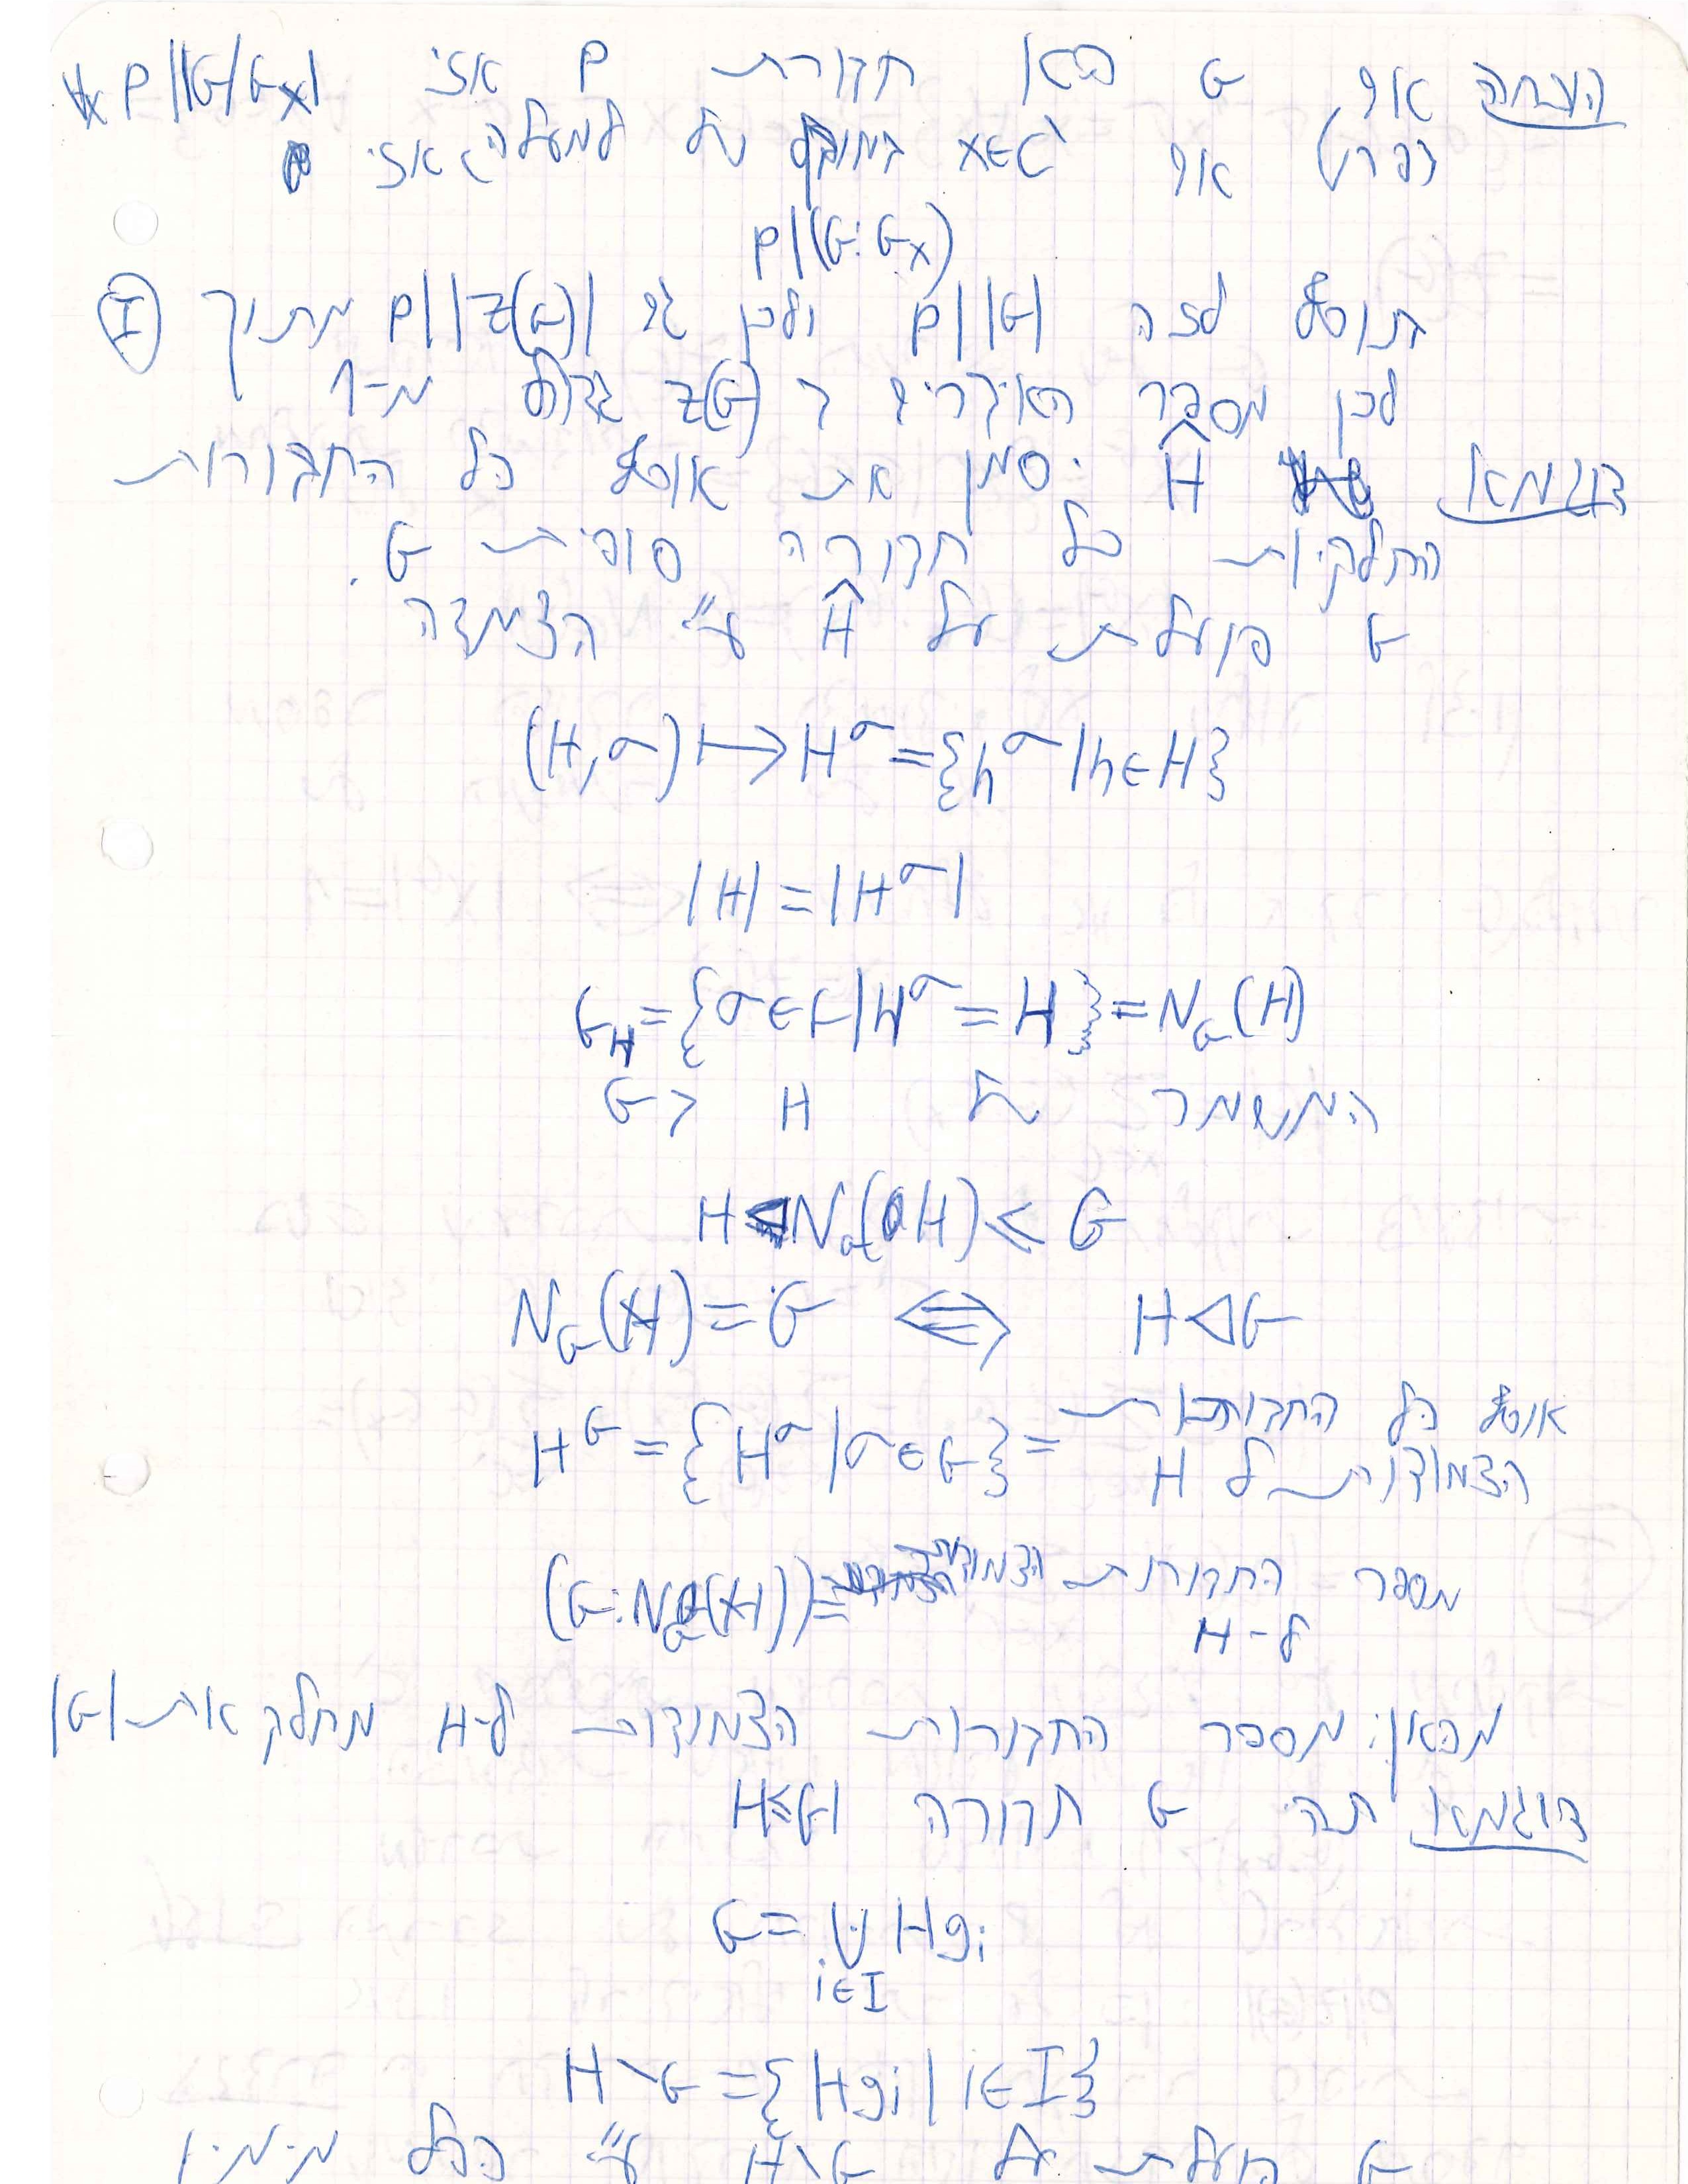 הערה אם G היא חבורת p אזי p||G/Gx| ∀x
בפרט אם x∈C במובן של למעלה, אזי
p|(G:Gx)
נוסף לזה p||G| ולכן גם p||Z(G)| מתוך (I)
לכן מספר האיברים ב Z(G) גדול מ-1
דוגמא Ĥ יסמן את אוסף כל החבורות
החלקיות של חבורה סופית G.
G פועלת על Ĥ ע״י הצמדה
(H,σ)↦H^σ={h^σ|h∈H}
|H|=|H^σ|
G_H={σ∈G|H^σ=H}=N_G(H)
המשמר של H ב G
H⊲N_G(H)≤G
N_G(H)=G ⇔ H⊲G
H^G={H^σ|σ∈G}= אוסף כל החבורות
הצמודות ל H
(G:N_G(H))= מספר החבורות הצמודות
ל-H
מכאן: מספר החבורות הצמודות ל-H מחלק את |G|
דוגמא תהי G חבורה ו H≤G
G=⋃Hg_i
i∈I
H\G={Hg_i|i∈I}
G פועלת על H\G ע״י הכפל מימין